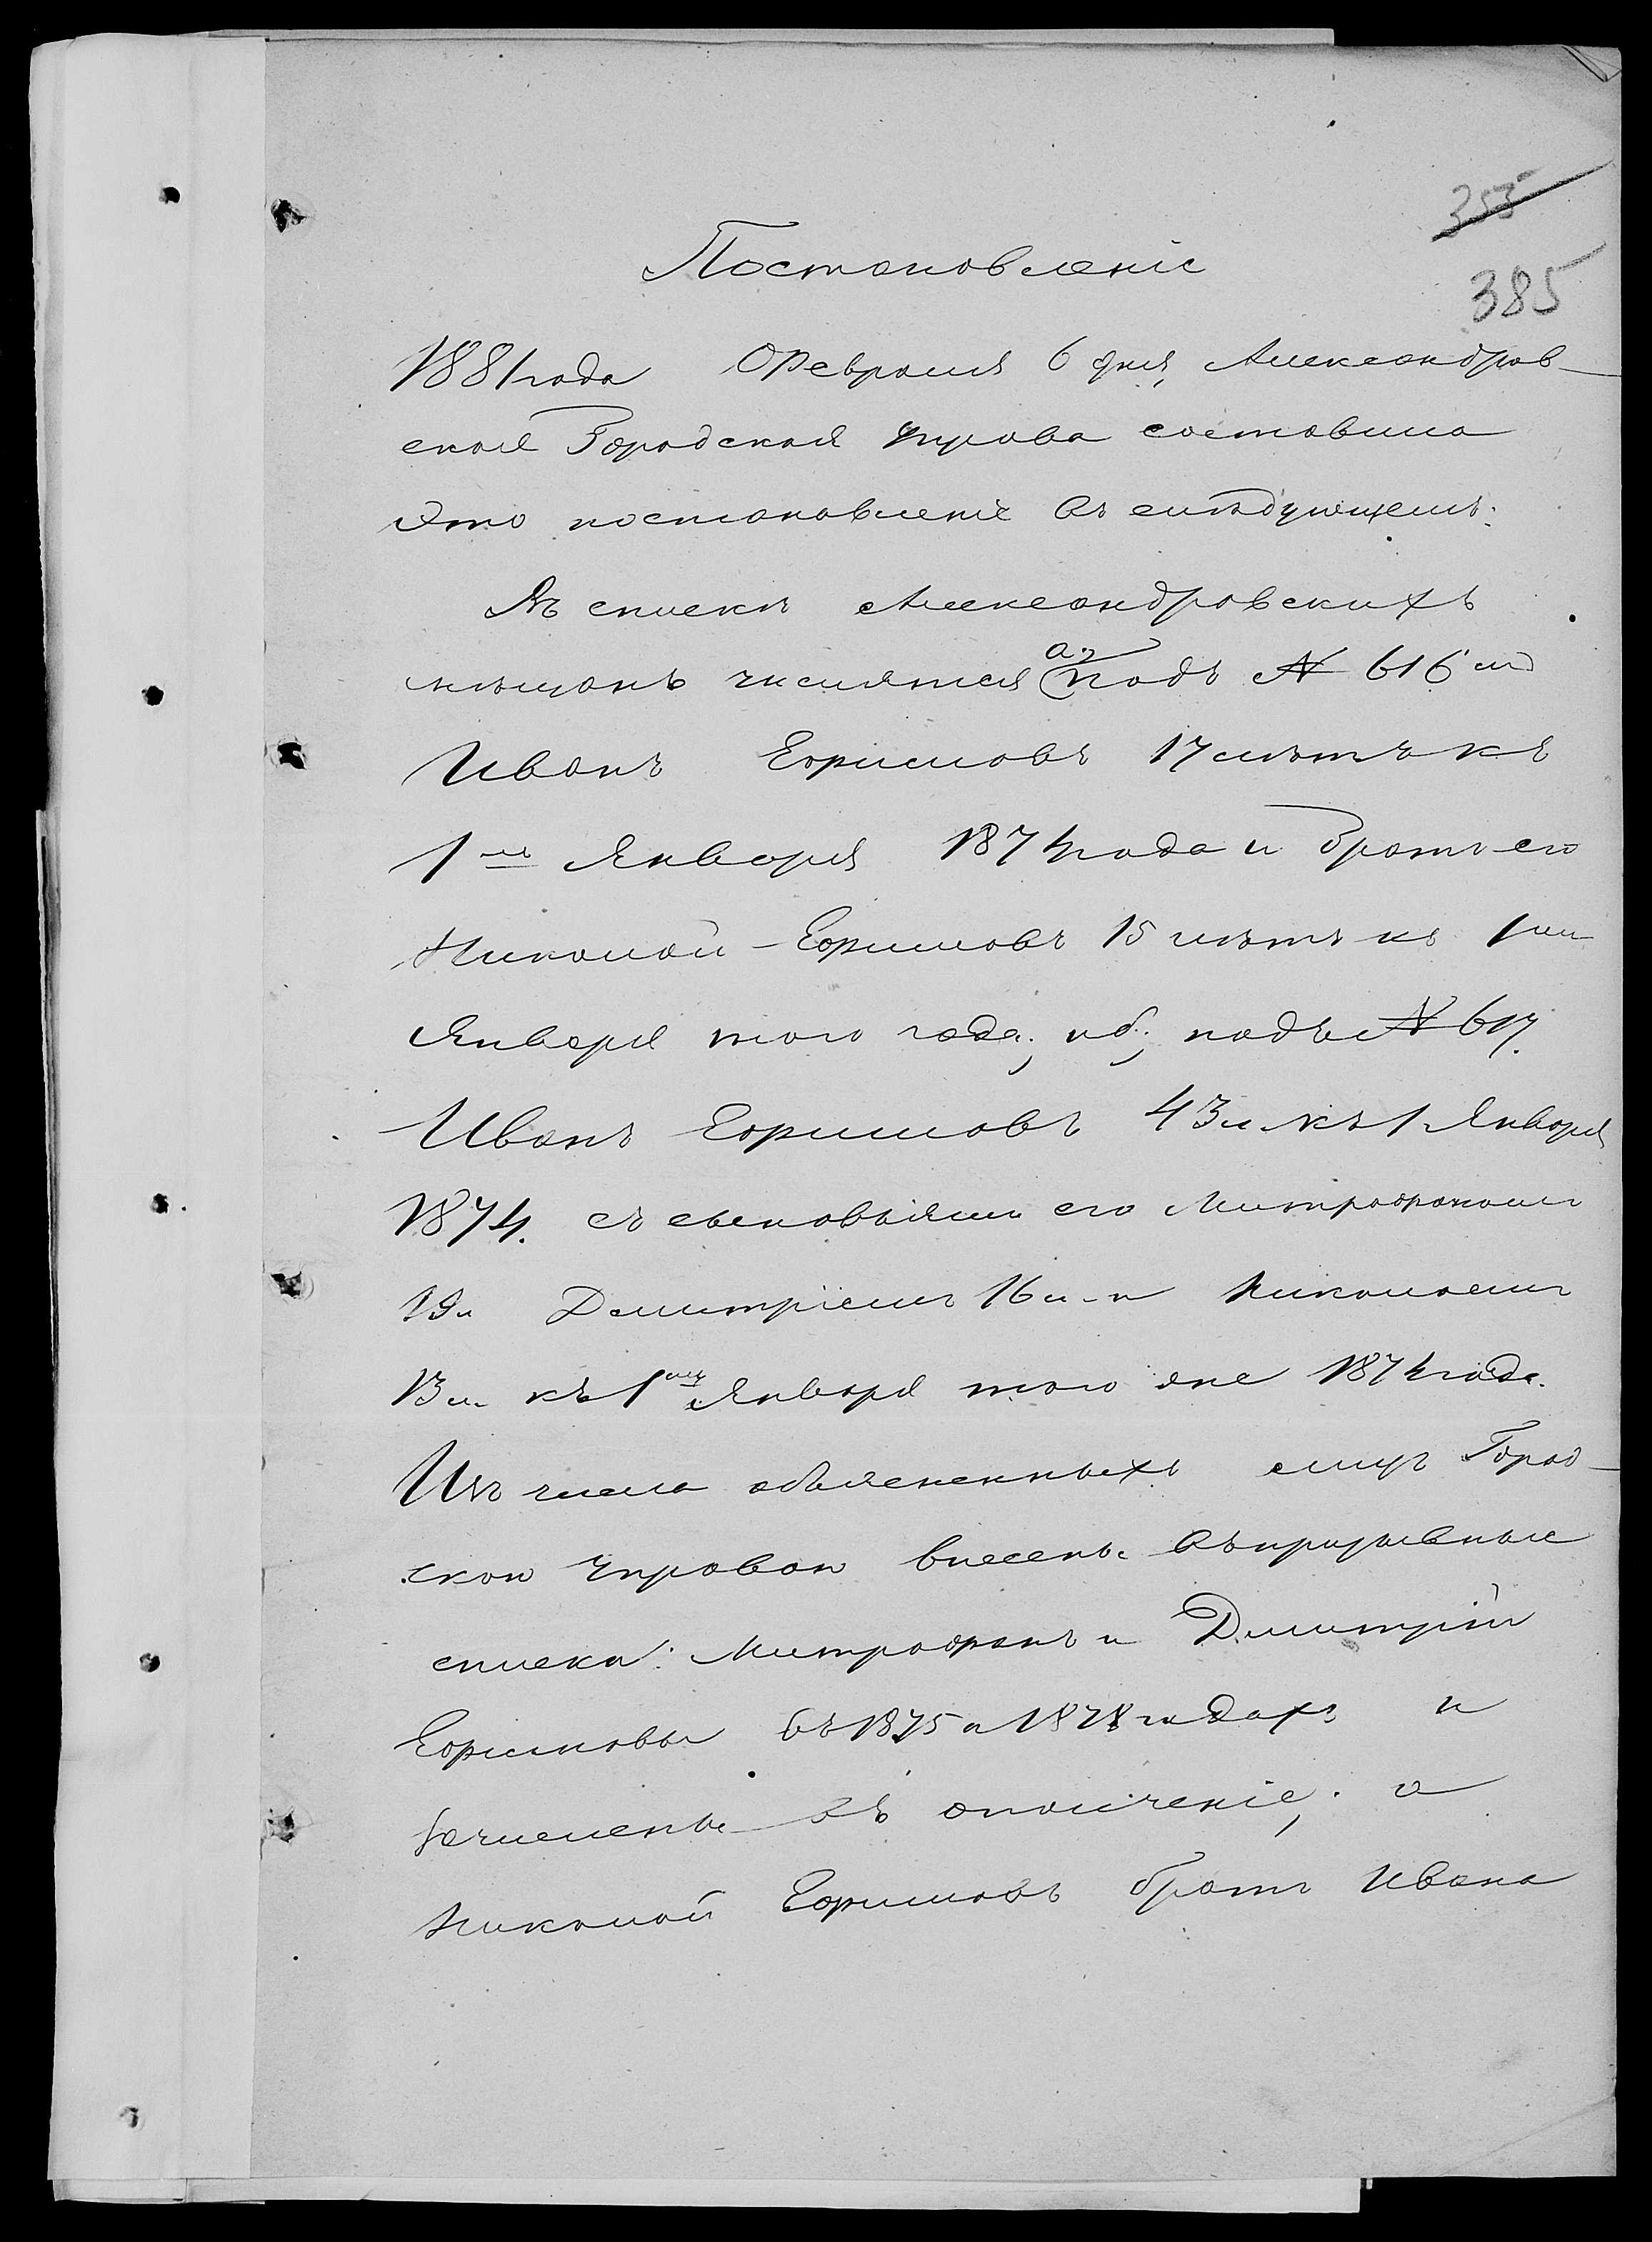 353
385
Постановленіе
1881 года Февраля 6 дня, Александров-
ская Городская Управа составила
это постановленіе въ слѣдующемъ:
Въ спискѣ Александровскихъ
мѣщанъ числятся а, подъ № 616 мъ
Иванъ Ефимовъ 17 лѣтъ къ
1 му Января 1874 года и братъ его
Николай Ефимовъ 15 лѣтъ къ 1 му
Января того года; и б, подъ № 617.
Иванъ Ефимовъ 43 л. къ 1 Января
1874. съ сыновьями его Митрофаномъ
19 л. Дмитріемъ 16 л. и Николаемъ
13 л. къ 1 му Января того же 1874 года.
Изъ числа объясненныхъ лицъ Город-
ской Управой внесены въ призывные
списки: Митрофанъ и Дмитрій
Ефимовы въ 1875 и 1878 годахъ и
зачислены въ ополченіе; а
Николай Ефимовъ братъ Ивана